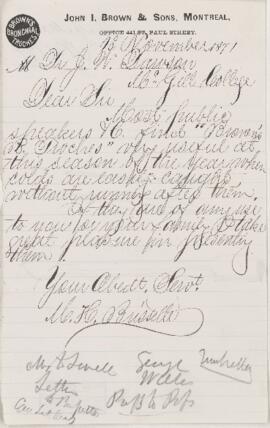 BROWN'S
BRONCHIAL
TROCHES
JOHN I. BROWN & SONS, MONTREAL,
OFFICE 442 ST. PAUL STREET.
15 November 1871
Dr J. W. Dawson
McGill College
Dear Sir
Most public
speakers &c. find "Brown's
Br. Troches" very useful at
this season of the year when
colds are easily caught
without many after them.
If they are of any use
to you or your family I take
great pleasure in presenting
them.
Your Obedt. Servt.
George
Umbrella
Letter